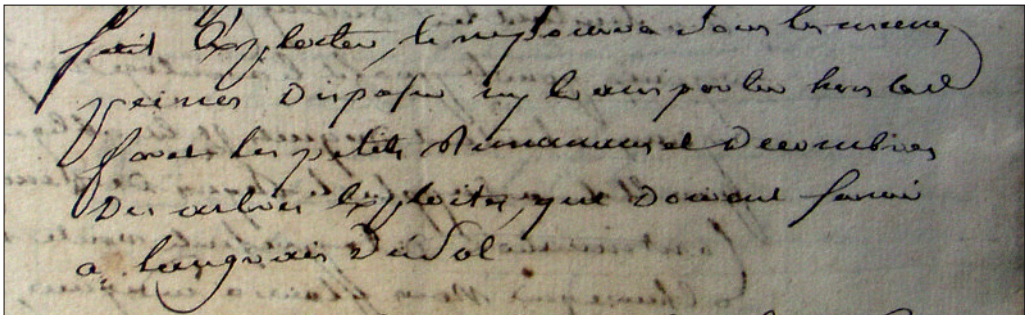 fait Exploiter, le ne pourra sous les mesmes
peines Disposer ny transporter hors lad
foret les petits Remanants et Decombres
Des arbres Exploités, que doivent servir
a Langrais Du Sol